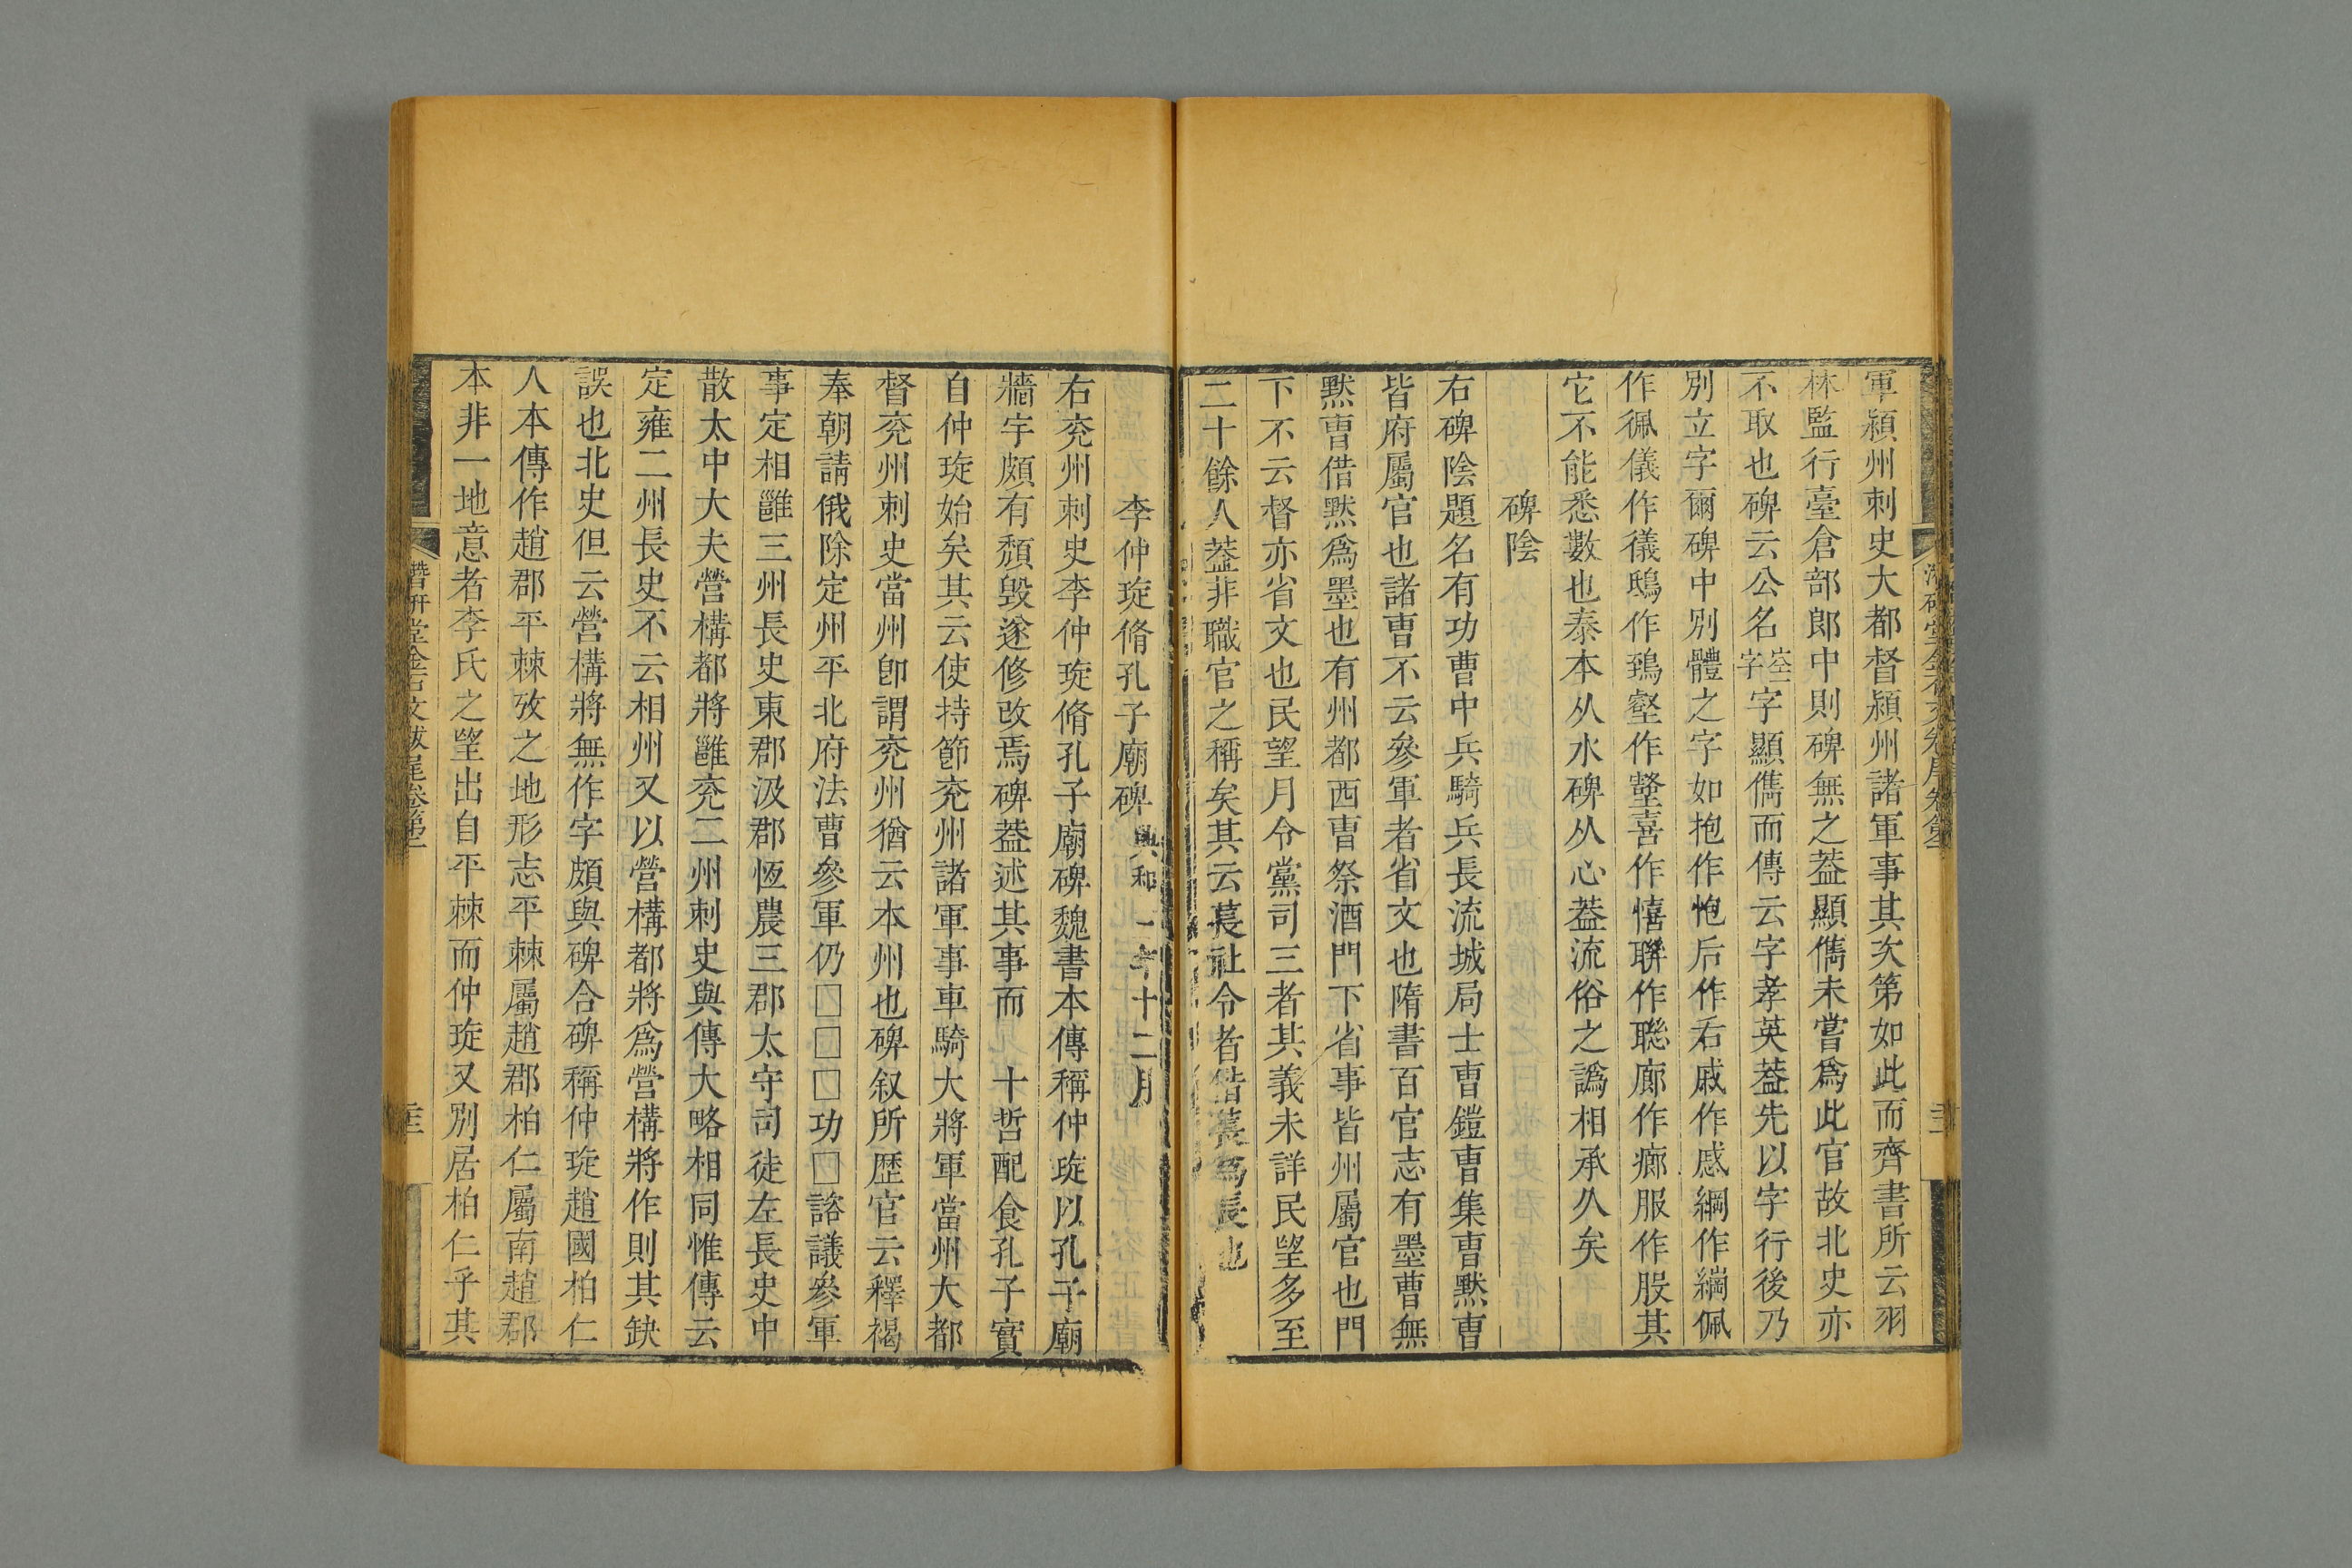 軍潁州刺史大都督潁州諸軍事其次第如此而齊書所云羽
林監行臺倉部郎中則碑無之葢顯儁未嘗爲此官故北史亦
不取也碑云公名空二字字顯儁而傳云字孝英葢先以字行後乃
別立字爾碑中別體之字如抱作怉后作右戚作慼綱作緔佩
作珮儀作䕏鴟作鵄壑作壑喜作憘聯作聮廊作癤服作股其
它不能悉數也泰本从水碑从心葢流俗之譌相承久矣
碑陰
右碑陰題名有功曹中兵騎兵長流城局士曹鎧曹集曹黙曹
皆府屬官也諸曹不云參軍者省文也隋書百官志有墨曹無
黙曹借黙爲墨也有州都西曹祭酒門下省事皆州屬官也門
下不云督亦省文也民望月令黨司三者其義未詳民望多至
二十餘人葢非職官之稱矣其云萇社令者借萇爲長也
李仲琁脩孔子廟碑 興和 十二月
右兖州刺史李仲琁脩孔子廟碑魏書本傳稱仲琁以孔子廟
牆宇頗有頹毀遂修改焉碑葢述其事而 十哲配食孔子實
自仲琁始矣其云使持節兖州諸軍事車騎大將軍當州大都
督兖州刺史當州卽謂兖州猶云本州也碑叙所歴官云釋褐
奉朝請俄除定州平北府法曹參軍仍□□□功□諮議參軍
事定相雝三州長史東郡汲郡恆農三郡太守司徒左長史中
散太中大夫營構都將雝兖二州刺史與傳大略相同惟傳云
定雍二州長史不云相州又以營構都將爲營構將作則其缺
誤也北史但云營構將無作字頗與碑合碑稱仲琁趙國柏仁
人本傳作趙郡平棘攷之地形志平棘屬趙郡柏仁屬南趙郡
本非一地意者李氏之望出自平棘而仲琁又別居柏仁乎其
潛研堂金石文跋尾卷第二